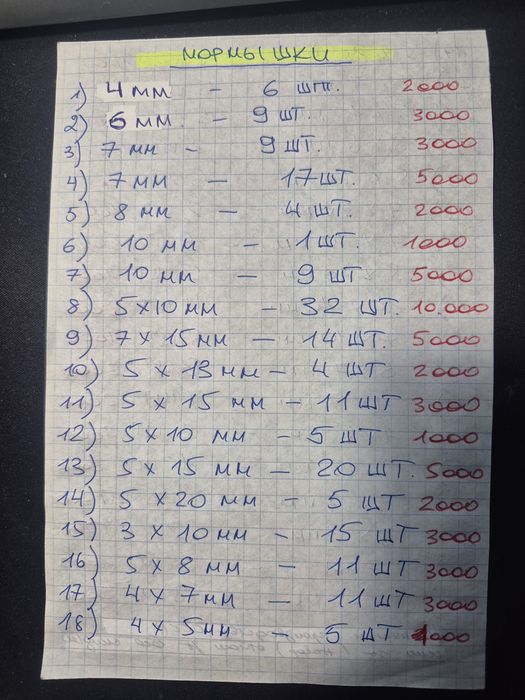 МОРМЫШКИ
1) 4 мм - 6 шт. 2000
2) 6 мм. - 9 шт. 3000
3) 7 мм - 9 шт. 3000
4) 7 мм - 17 шт. 5000
5) 8 мм - 4 шт. 2000
6) 10 мм - 1 шт. 1000
7) 10 мм - 9 шт. 5000
8) 5х10 мм - 32 шт. 10.000
9) 7 х 15 мм - 14 шт. 5000
10) 5 х 13 мм - 4 шт 2000
11) 5 х 15 мм - 11 шт 3000
12) 5 х 10 мм - 5 шт 1000
13) 5 х 15 мм - 20 шт. 5000
14) 5 х 20 мм - 5 шт 2000
15) 3 х 10 мм - 15 шт 3000
16) 5 х 8 мм - 11 шт 3000
17) 4 х 7 мм - 11 шт 3000
18) 4 х 5 мм - 5 шт 1000